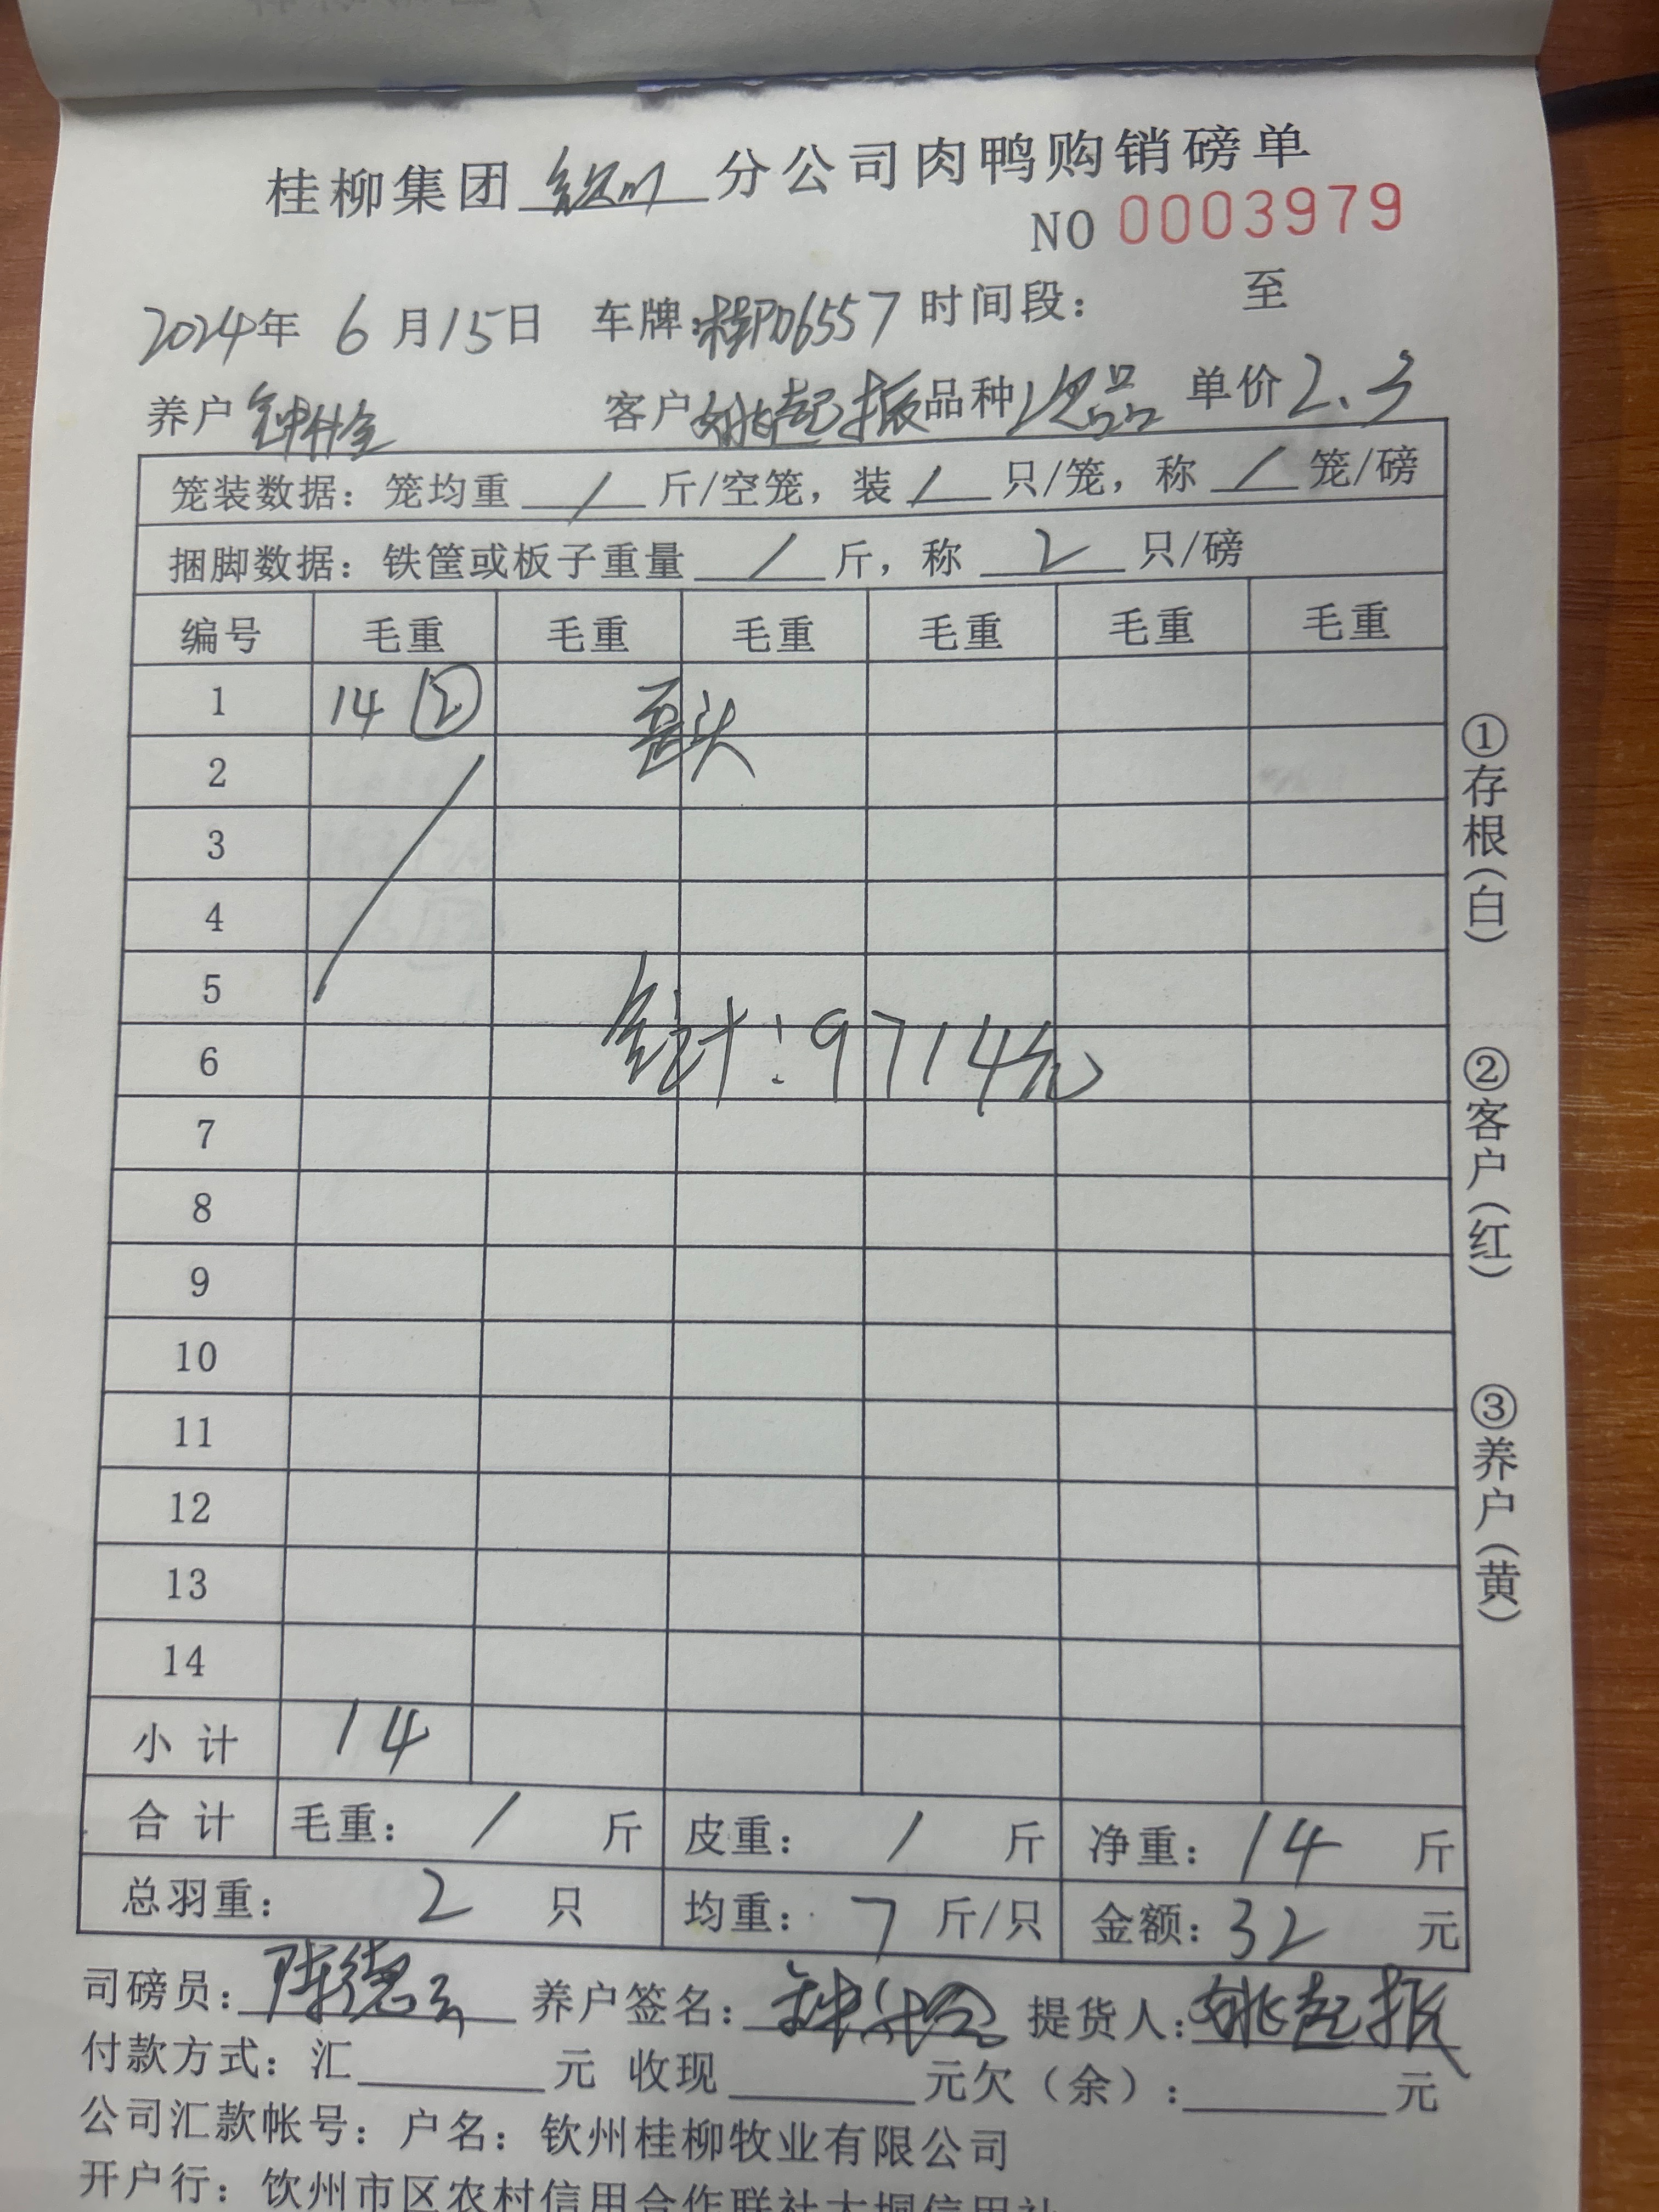 桂柳集团 钦州 分公司肉鸭购销磅单
NO 0003979
2024年 6月15日 车牌:桂PD6557 时间段: 至
养户 客户姚起振 品种次品 单价2.3
笼装数据: 笼均重 / 斤/空笼, 装 / 只/笼, 称 / 笼/磅
捆脚数据: 铁筐或板子重量 / 斤, 称 2 只/磅
编号 毛重 毛重 毛重 毛重 毛重 毛重
1 14 ②
歪头
2
3
4
5
合计:9714元
6
7
8
9
10
11
12
13
14
小计 14
合计 毛重: / 斤 皮重: / 斤 净重: 14 斤
总羽重: 2 只 均重: 7 斤/只 金额: 32 元
司磅员: 陈德 养户签名: 提货人: 姚起振
付款方式: 汇 元 收现 元欠(余): 元
公司汇款帐号: 户名: 钦州桂柳牧业有限公司
开户行: 钦州市区农村信用合作联社大垌信用社
①存根(白)
②客户(红)
③养户(黄)